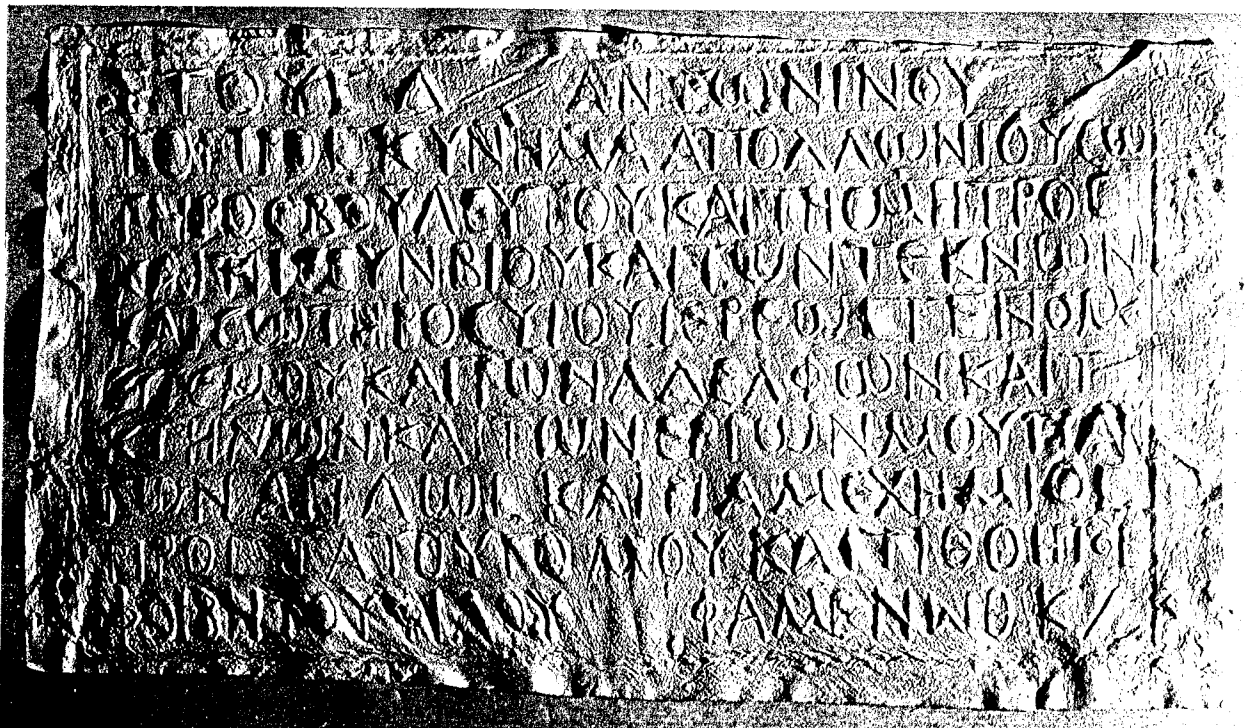 ΕΤΟΥϹ ΑΝΤΩΝΙΝΟΥ
ΤΟ ΠΡΟϹΚΥΝΗΜΑ ΑΠΟΛΛΩΝΙΟΥ ϹΩ
ΤΗΡΟϹ ΒΟΥΛΕΥΤΟΥ ΚΑΙ ΤΗϹ ΜΗΤΡΟϹ
ΚΑΙ ΤΗϹ ϹΥΝΒΙΟΥ ΚΑΙ ΤΩΝ ΤΕΚΝΩΝ
ΚΑΙ ϹΩΤΗΡΟϹ ΥΙΟΥ ΙΕΡΕΩϹ
ΚΑΙ ΤΩΝ ΑΔΕΛΦΩΝ ΚΑΙ Τ
ΚΤΗΝΩΝ ΚΑΙ ΤΩΝ ΕΡΓΩΝ ΜΟΥ ΠΑ
ΤΩΝ ΑΠΛΩϹ ΚΑΙ ΠΑΜΕΧΗΜΙΟϹ
ΠΡΟϹΤΑΤΟΥ ΝΟΜΟΥ ΚΑΙ
ΦΙΛΟΥ ΦΑΜΕΝΩΘ ΚΖ